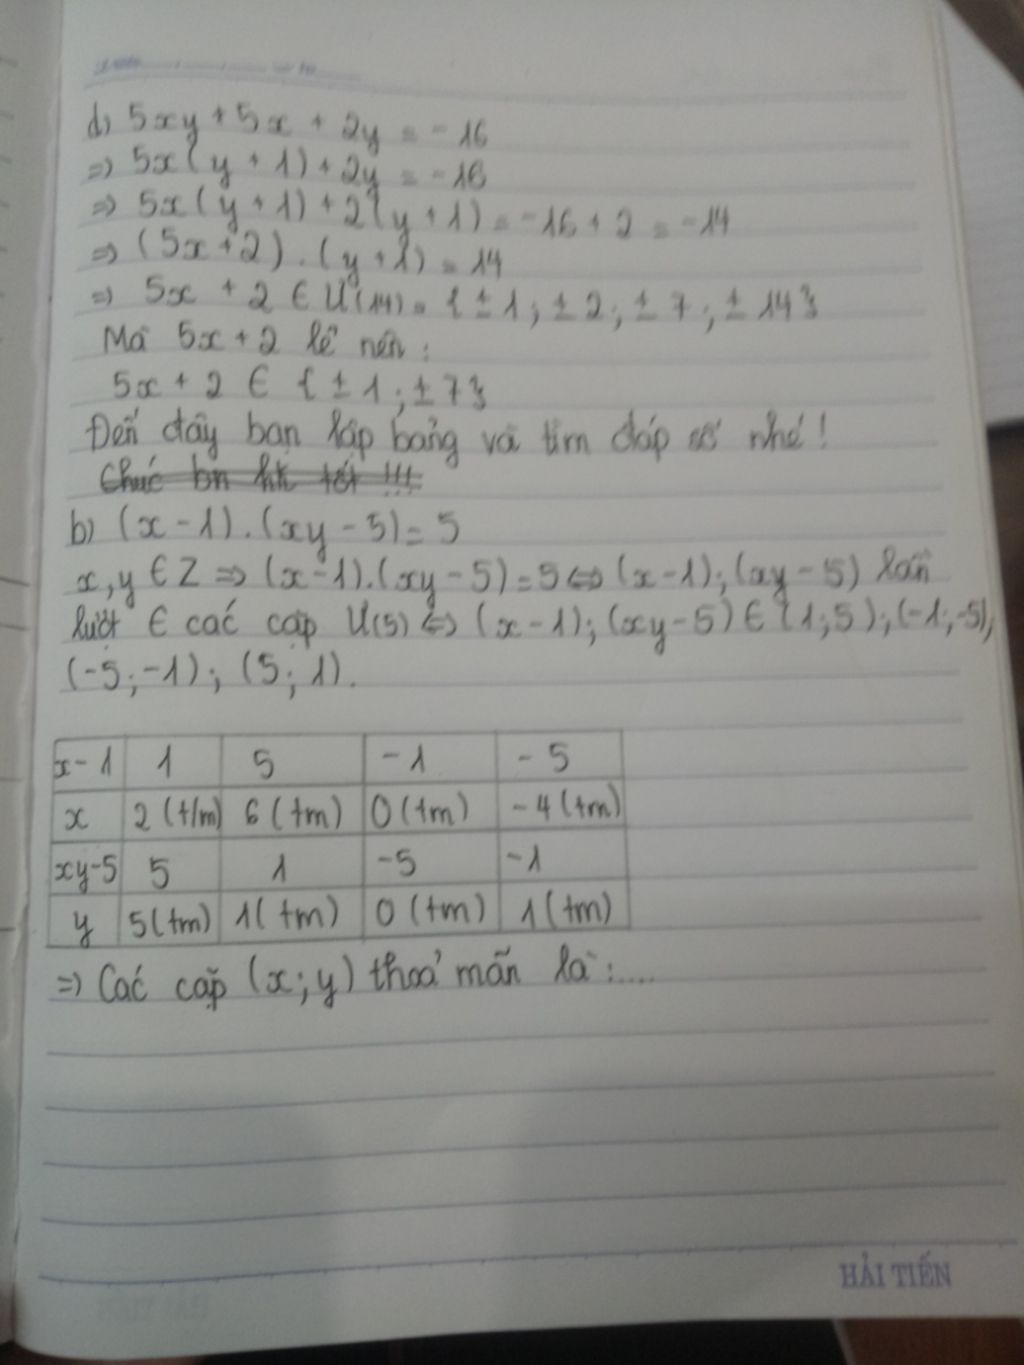 d) 5xy + 5x + 2y = -16
=) 5x(y + 1) + 2y = -16
=) 5x(y + 1) + 2(y + 1) = -16 + 2 = -14
=) (5x + 2) . (y + 1) = 14
=) 5x + 2 ∈ Ư(14) = { ± 1 ; ± 2 ; ± 7 ; ± 14 }
Mà 5x + 2 lẻ nên :
5x + 2 ∈ { ± 1 ; ± 7 }
Đến đây bạn lập bảng và tìm đáp số nhé !
Chúc bn hk tốt !!!
b) (x - 1) . (xy - 5) = 5
x, y ∈ Z => (x - 1) . (xy - 5) = 5 <=> (x - 1) ; (xy - 5) lần
lượt ∈ các cặp Ư(5) <=> (x - 1) ; (xy - 5) ∈ (1 ; 5) ; (-1 ; -5) ;
(-5 ; -1) ; (5 ; 1) .
x - 1 1 5 -1 -5
x 2 (t/m) 6 (tm) 0 (tm) -4 (tm)
xy-5 5 1 -5 -1
y 5 (tm) 1 (tm) 0 (tm) 1 (tm)
=) Các cặp (x ; y) thoả mãn là : ....
HẢI TIẾN